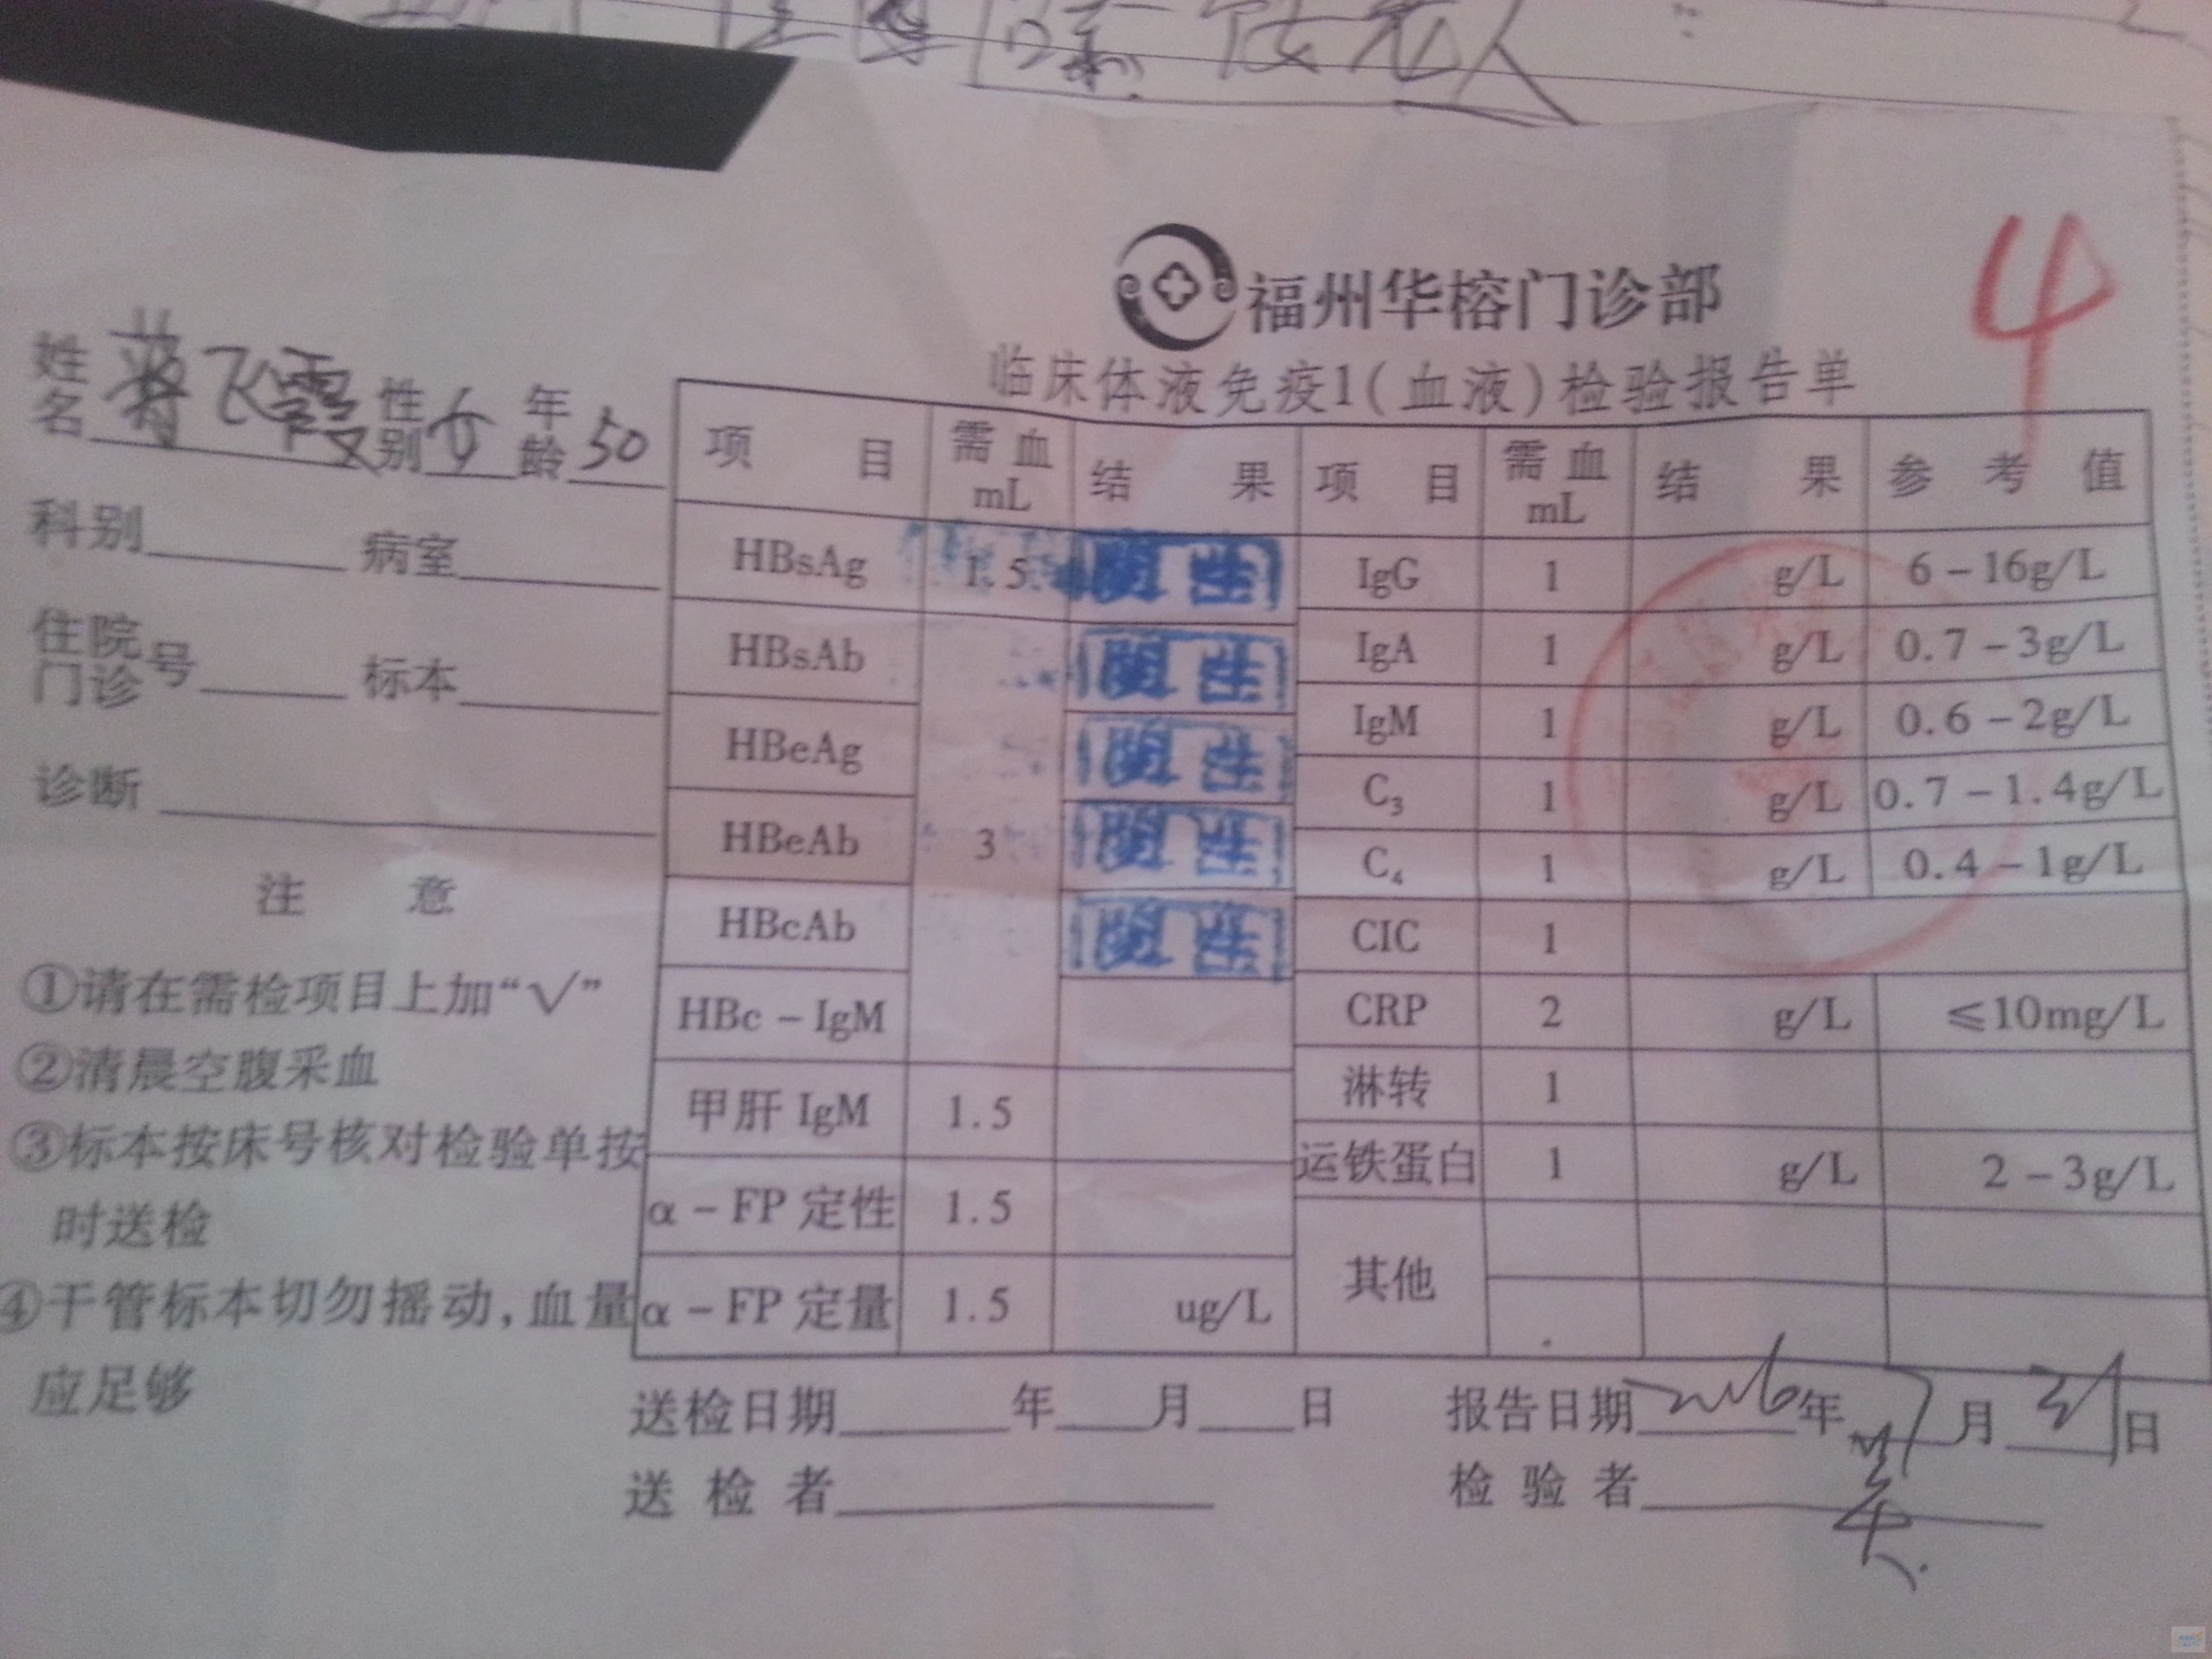 福州华榕门诊部
4
临床体液免疫1(血液)检验报告单
姓名 蒋飞霞 性别 女 年龄 50
科别 病室
住院门诊号 标本
诊断
注 意
①请在需检项目上加“√”
②清晨空腹采血
③标本按床号核对检验单按
时送检
④干管标本切勿摇动,血量
应足够
项 目 需血mL 结 果 项 目 需血mL 结 果 参 考 值
HBsAg 1.5 阴性 IgG 1 g/L 6－16g/L
HBsAb 阴性 IgA 1 g/L 0.7－3g/L
HBeAg 阴性 IgM 1 g/L 0.6－2g/L
HBeAb 3 阴性 C₃ 1 g/L 0.7－1.4g/L
HBcAb 阴性 C₄ 1 g/L 0.4－1g/L
CIC 1
HBc－IgM CRP 2 g/L ≤10mg/L
甲肝 IgM 1.5 淋转 1
α－FP 定性 1.5 运铁蛋白 1 g/L 2－3g/L
α－FP 定量 1.5 ug/L 其他
送检日期 年 月 日 报告日期 2016 年 7 月 日
送 检 者 检 验 者